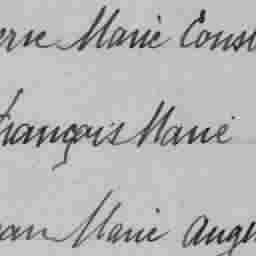 erre Marie Const
François Marie
ean Marie Ange